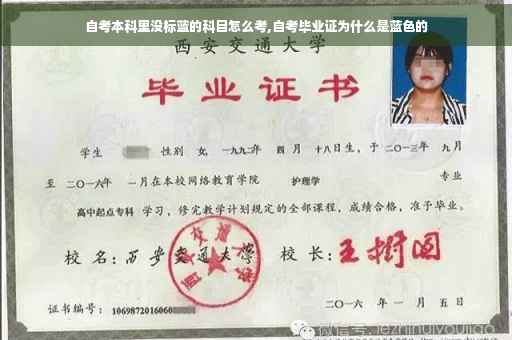 自考本科里没标蓝的科目怎么考,自考毕业证为什么是蓝色的
西安交通大学
毕业证书
学生 性别 女, 一九九二年 四月 十八日生, 于二〇一三年 九月
至 二〇一六年 一月在本校网络教育学院 护理学 专业
高中起点专科 学习, 修完教学计划规定的全部课程, 成绩合格, 准予毕业。
校 名: 西安交通大学 校 长: 王树国
西安交通大学
证书编号: 1069872016060
二〇一六 年 一 月 五 日
微信号: jezhinuiyoujiao